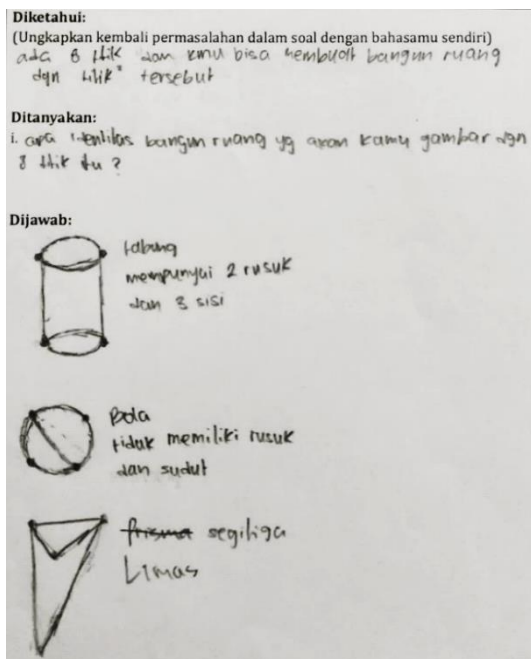 Diketahui:
(Ungkapkan kembali permasalahan dalam soal dengan bahasamu sendiri)
ada 8 titik dan kmu bisa membuat bangun ruang
dgn titik" tersebut
Ditanyakan:
i. apa identitas bangun ruang yg akan kamu gambar dgn
8 titik itu ?
Dijawab:
tabung
mempunyai 2 rusuk
dan 3 sisi
Bola
tidak memiliki rusuk
dan sudut
prisma segitiga
Limas